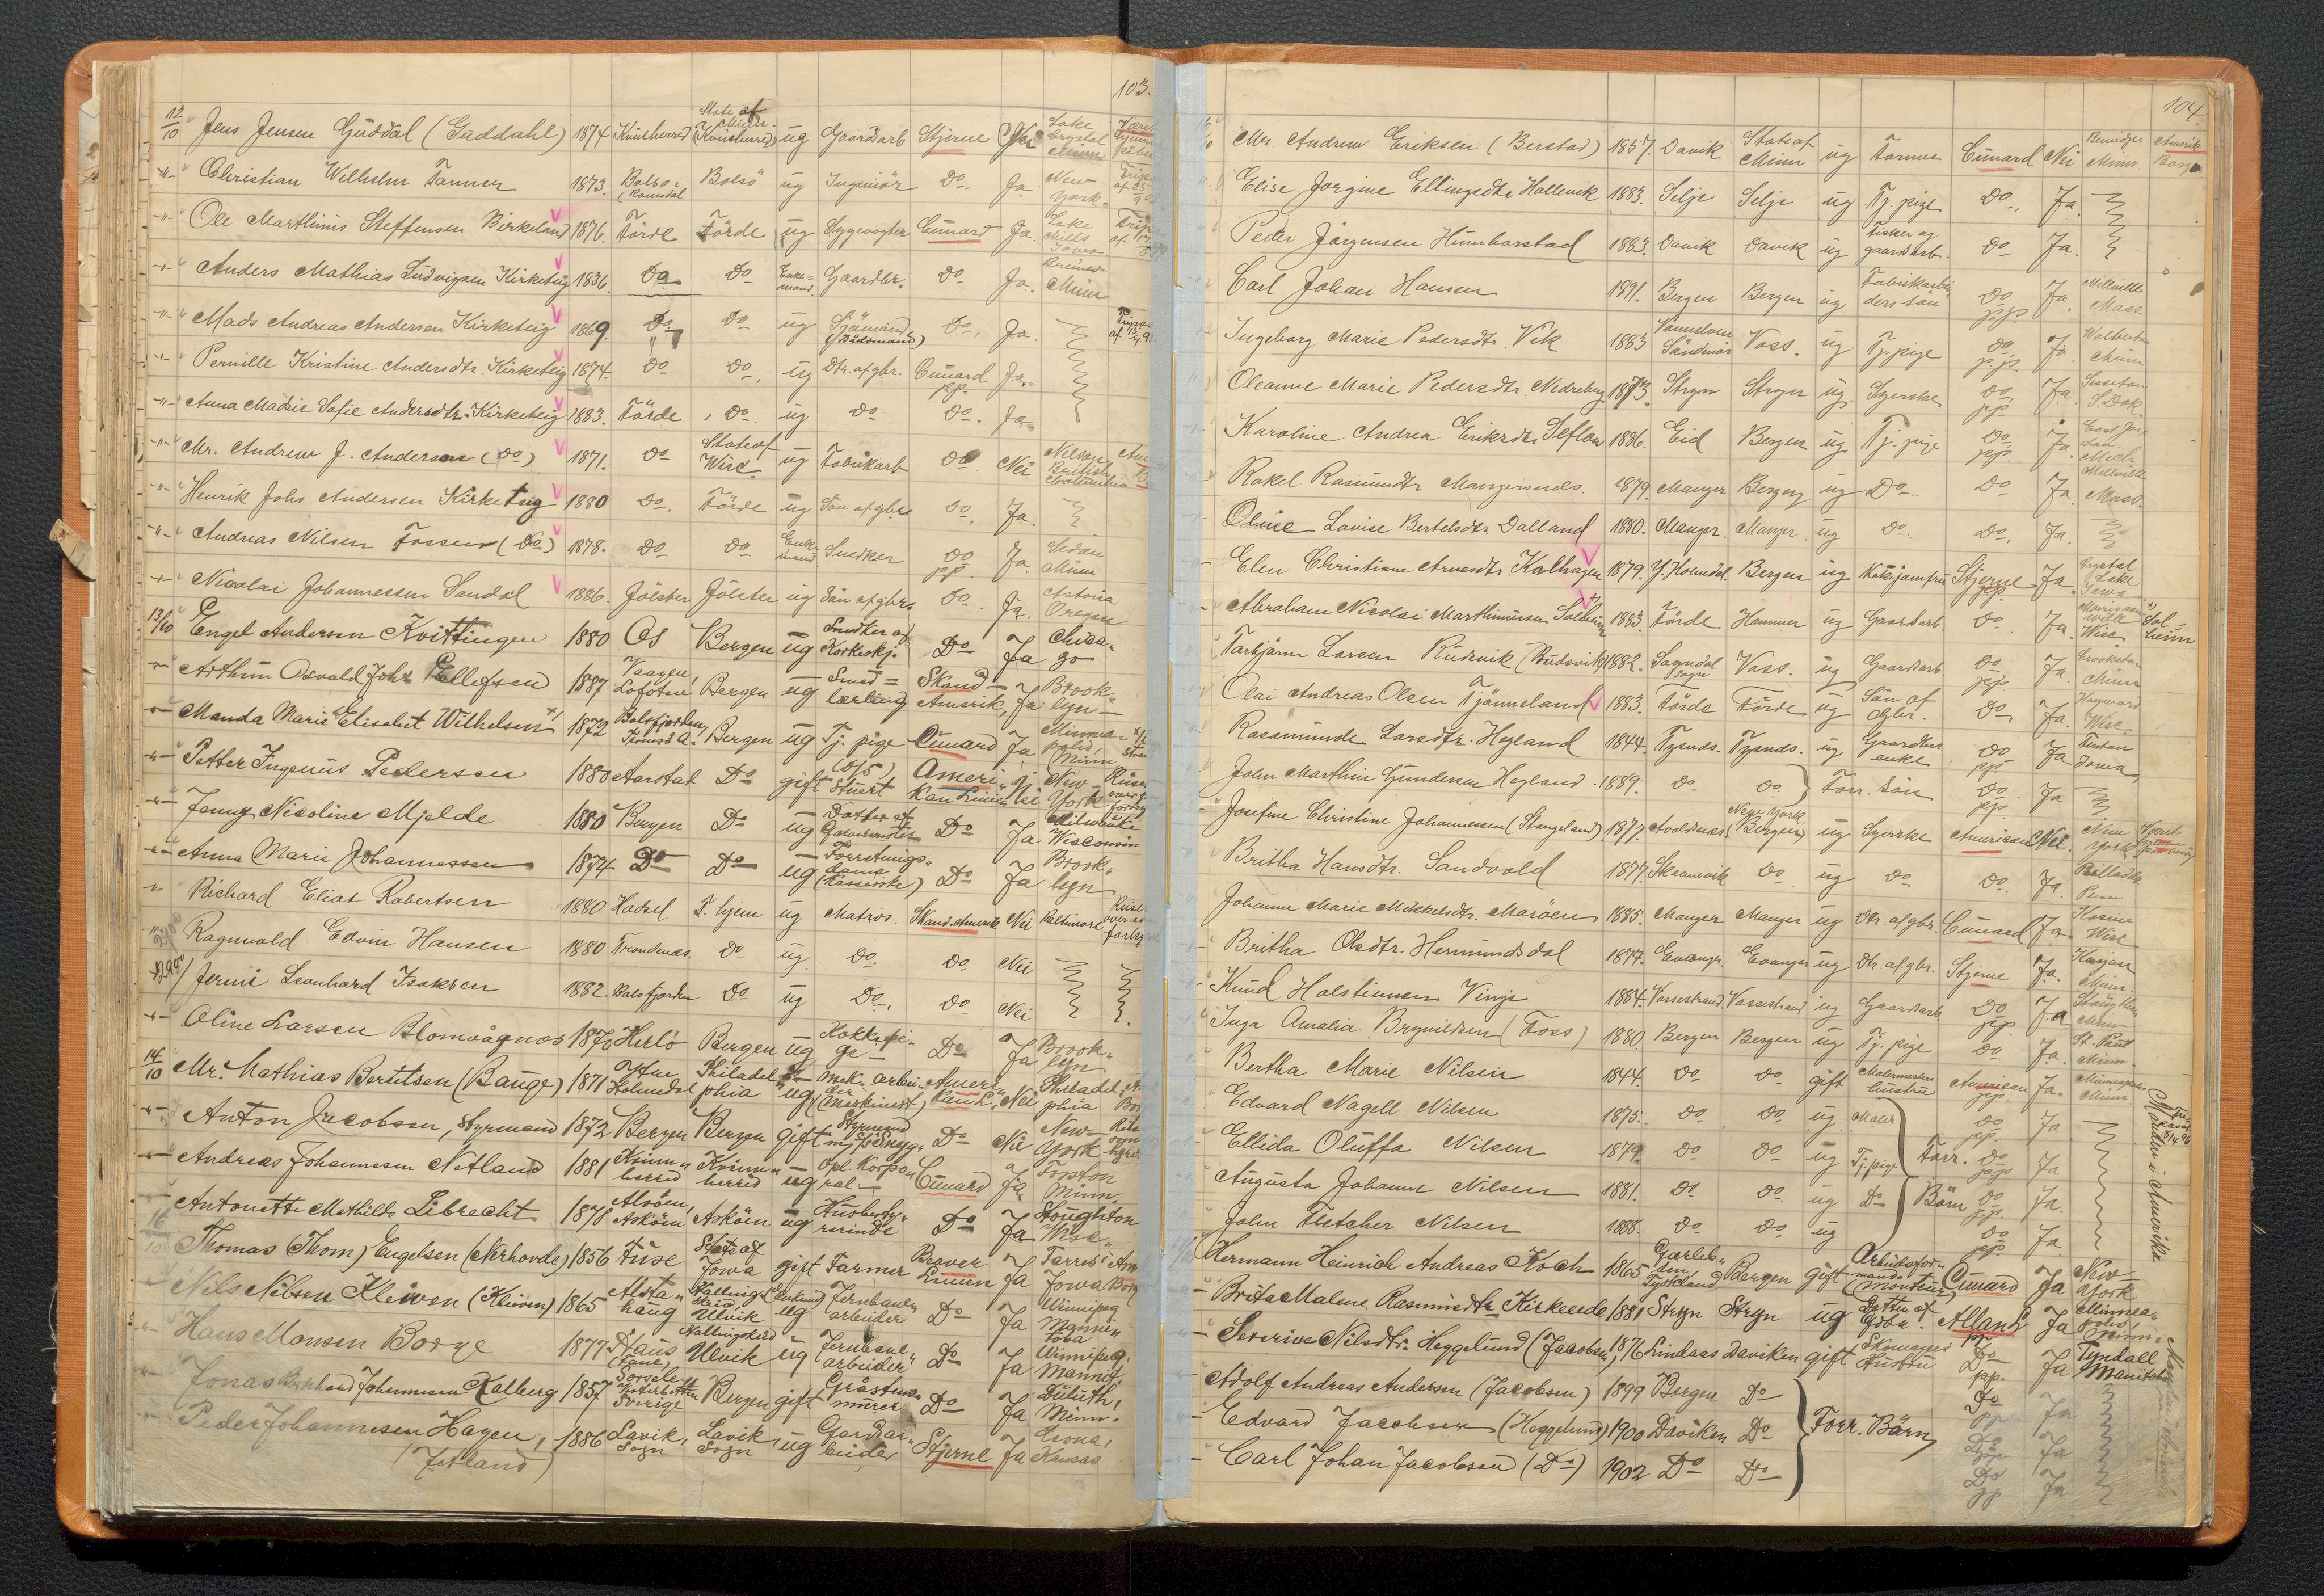 103.
12/10 Jens Jensen Guddal (Guddahl) 1874 Kvinherred State of Minn. (Kvinherred) ug Gaardarb Stjerne Nei Lake Crystal Minn
-"- Christian Wilhelm Tanner 1873. Bolsö i Romsdal Bolsö ug Ingeniör Do. Ja. New York
-"- Ole Marthinus Steffensen Birkeland 1876. Förde Förde ug Sygevogter Cunard Ja. Lake Mills Iowa
-"- Anders Mathias Ludvigsen Kirketeig 1836. Do Do Enkemand. Gaardbr. Do Ja. Minn
-"- Mads Andreas Andersen Kirketeig 1869. Do Do ug Sjömand (Baadsmand) Do. Ja.
-"- Pernille Kristine Andersdtr. Kirketeig 1874. Do Do. ug Dtr. af gbr. Cunard p.p. Ja.
-"- Anna Madsie Sofie Andersdtr. Kirketeig 1883. Förde Do ug Do Do. Ja
-"- Mr. Andrew J. Anderson (Do) 1871. Do State of Wisc. ug Fabrikarb Do Nei Nelson British Columbia
-"- Henrik Johs Andersen Kirketeig 1880 Do. Förde ug Sön af gbr. Do. Ja.
-"- Andreas Nilsen Fossen (Do) 1878. Do Do Enkemand Snedker Do pp. Ja. Sedan Minn
-"- Nicolai Johannessen Sandal 1886. Jölster Jölster ug Sön af gbr. Do. Ja. Astoria Oregon
13/10 Engel Andersen Kvittingen 1880 Os Bergen ug Snedker og Korkeskj. Do Ja Chicago
-"- Arthur Osvald Johs Ellefsen 1887 Vaagen, Lofoten Bergen ug Smedlærling Skand-Amerik, Ja Brooklyn
-"- Manda Marie Elisabet Wilhelsen 1872 Balsfjorden, Tromsö A. Bergen ug Tj. pige Cunard Ja Minneapolis, Minn
-"- Petter Ingenius Pedersen 1880 Aarstat Do gift Stuert Amerikan Linien Nei New York
-"- Jenny Nicoline Mjelde 1880 Bergen Do ug Datter af Garvermester Do Ja Milwaukee Wisconsin
-"- Anna Marie Johannessen 1874 Do Do ug Forretningsdame (Kassererske) Do Ja Brooklyn
" Richard Elias Robertsen 1880 Hadsel T. hjem ug Matros. Skand. Amerik Nei Baltimore
-"- Ragnvald Edvin Hansen 1880 Trondenæs. Do ug Do. Do Nei
Jernü Leonhard Isaksen 1882. Balsfjorden Do ug Do. Do Nei
-"- Oline Larsen Blomvågnes 1870 Herlö Bergen ug Kokkepige Do Ja Brooklyn
14/10 Mr. Mathias Berntsen (Bauge) 1871 Ytre Holmedal Philadelphia ug Mek. arbeider (Maskinist) Amerikan L. Nei Philadelphia
-"- Anton Jacobsen, Styrmand 1872 Bergen Bergen gift Styrmand Do Nei New York
-"- Andreas Johannesen Netland 1881 Kvinnherred Kvinnherred ug Opl. Korporal Cunard Ja Foxton Minn.
Antonette Mathilde Librecht 1878 Alsöen, Asköen Asköen ug Husbestyrerinde Do Ja Stoughton Wisc.
16/10 Thomas (Thom) Engelsen (Nerhovde) 1856 Fuse State of Iowa gift Farmer Beaver Linien Ja Iowa
Nils Nilsen Kleiven (Kleiven) 1865 Alstahaug Hallingskeid Ulvik ug Jernbanearbeider Do Ja Winnipeg Mannitoba
Hans Monsen Borge 1877 Haus (Fane) Hallingskeid Ulvik ug Jernbanearbeider Do Ja Winnipeg, Mannit.
Jonas Johannesen Kalberg 1857 Sorsele Vesterbotten Sverige Bergen gift Gråstensmurer Do Ja Duluth, Minn.
Peder Johannesen Hagen, (Jetland) 1886 Lavik, Sogn Lavik, Sogn ug Gardarbeider Stjerne Ja Kansas
104.
Mr. Andrew Eriksen (Berstad) 1857. Davik State of Minn ug Farmer Cunard Nei Bemidger Minn.
Elise Jorgine Ellingsdtr Hallevik 1883. Selje Selje ug Tj. pige Do. Ja.
Peder Jörgensen Humborstad 1883. Davik Davik ug Fisker og gaardsarb. Do Ja.
Carl Johan Hansen 1891. Bergen Bergen ug Fabrikarbeiders sön Do p.p. Ja. Millville Mass.
Ingeborg Marie Pedersdtr. Vik 1883 Vannelven Söndmör Voss. ug Tj. pige Do. p.p. Ja. Minn
Oleanne Marie Pedersdtr. Nedreberg 1873. Stryn Stryn ug. Syerske Do. p.p. Ja. S. Dak.
Karoline Andrea Eriksdtr Leflow 1886. Eid Bergen ug Tj. pige Do. p.p. Ja. Mich
Rakel Rasmusdtr Mangersnes. 1879. Manger Bergen ug Do. Do Ja. Millville Mass.
Oline Lovise Bertelsdtr Dalland 1880. Manger. Manger. ug Do. Do. Ja.
Elen Christiane Arnesdtr. Kalhagen 1879. Y. Holmedal. Bergen ug Kokkejomfru Stjerne p.p. Ja. Crystal Lake Iowa
Abraham Nicolai Marthinusen Solheim 1883. Förde Hammer ug Gaardsarb. Do Ja. Wisc. Solheim
Torbjörn Larsen Rudsvik (Rudsvik) 1882. Sogndal Sogn Voss. ug Gaardsarb Do p.p. Ja. Crookston Minn
Olai Andreas Olsen Tjönneland 1883. Förde Förde ug Sön af Gbr. Do. Ja. Hayward Wisc.
Rasamunde Larsdtr. Hegland 1844. Tysnes. Tysnes. ug Gaardbr. enke Do p.p. Ja Fenton Iowa
John Marthin Gundersen Hegland 1889. Do Do. Forr. Sön Do p.p. Ja
Josefine Christine Johannessen (Stangeland) 1877. Avaldsnæs New York (Bergen) ug Syerske American Nei. New York
Britha Hansdtr. Sandvold 1877. Skaanevik Do. ug Do Do. Ja. Penn
Johanne Marie Mikkelsdtr. Maröen 1885. Manger Manger ug Dtr. af gbr. Cunard Ja. Wisc
Britha Olsdtr. Hermundsdal 1877. Evanger. Evanger ug Dtr. af. gbr. Stjerne Ja. Minn.
Knud Holstinusen Vinje 1884. Vossestrand. Vossestrand ug Gaardsarb. Do p.p. Ja Minn
Inga Amalia Brynildsen (Foss) 1880. Bergen Bergen ug Tj. pige Do Ja. St. Paul Minn.
Bertha Marie Nilsen 1844. Do Do gift Malermesters hustru American p.p. Ja. Minneapolis Minn. Manden i Amerika
Edvard Nagell Nilsen 1875. Do Do. ug Maler Do p.p. Ja
Ellida Oluffa Nilsen 1879. Do Do ug Tj. pige Forr. Do p.p. Ja
Augusta Johanne Nilsen 1881. Do Do. ug Do Börn Do p.p. Ja.
John Fletcher Nilsen 1888. Do Do. ug Do p.p. Ja
Hermann Heinrich Andreas Koch 1865 Tyskland Bergen gift Arbeidsformand (Montör) Cunard Ja New York
Brita Malene Rasmusdtr Kirkeeide 1881 Stryn Stryn ug Datter af Gbr. Allan L Ja Minneapolis, Minn.
Severine Nilsdtr. Heggelund (Jacobsen) 1876 Lindaas Daviken gift Skomagers Hustru Do pp. Ja Tyndall Manitoba
Adolf Andreas Andersen (Jacobsen) 1899 Bergen Do Do pp Ja
Edvard Jacobsen (Heggelund) 1900 Daviken Do Forr. Börn Do pp Ja
Carl Johan Jacobsen (Do) 1902 Do Do Do pp Ja